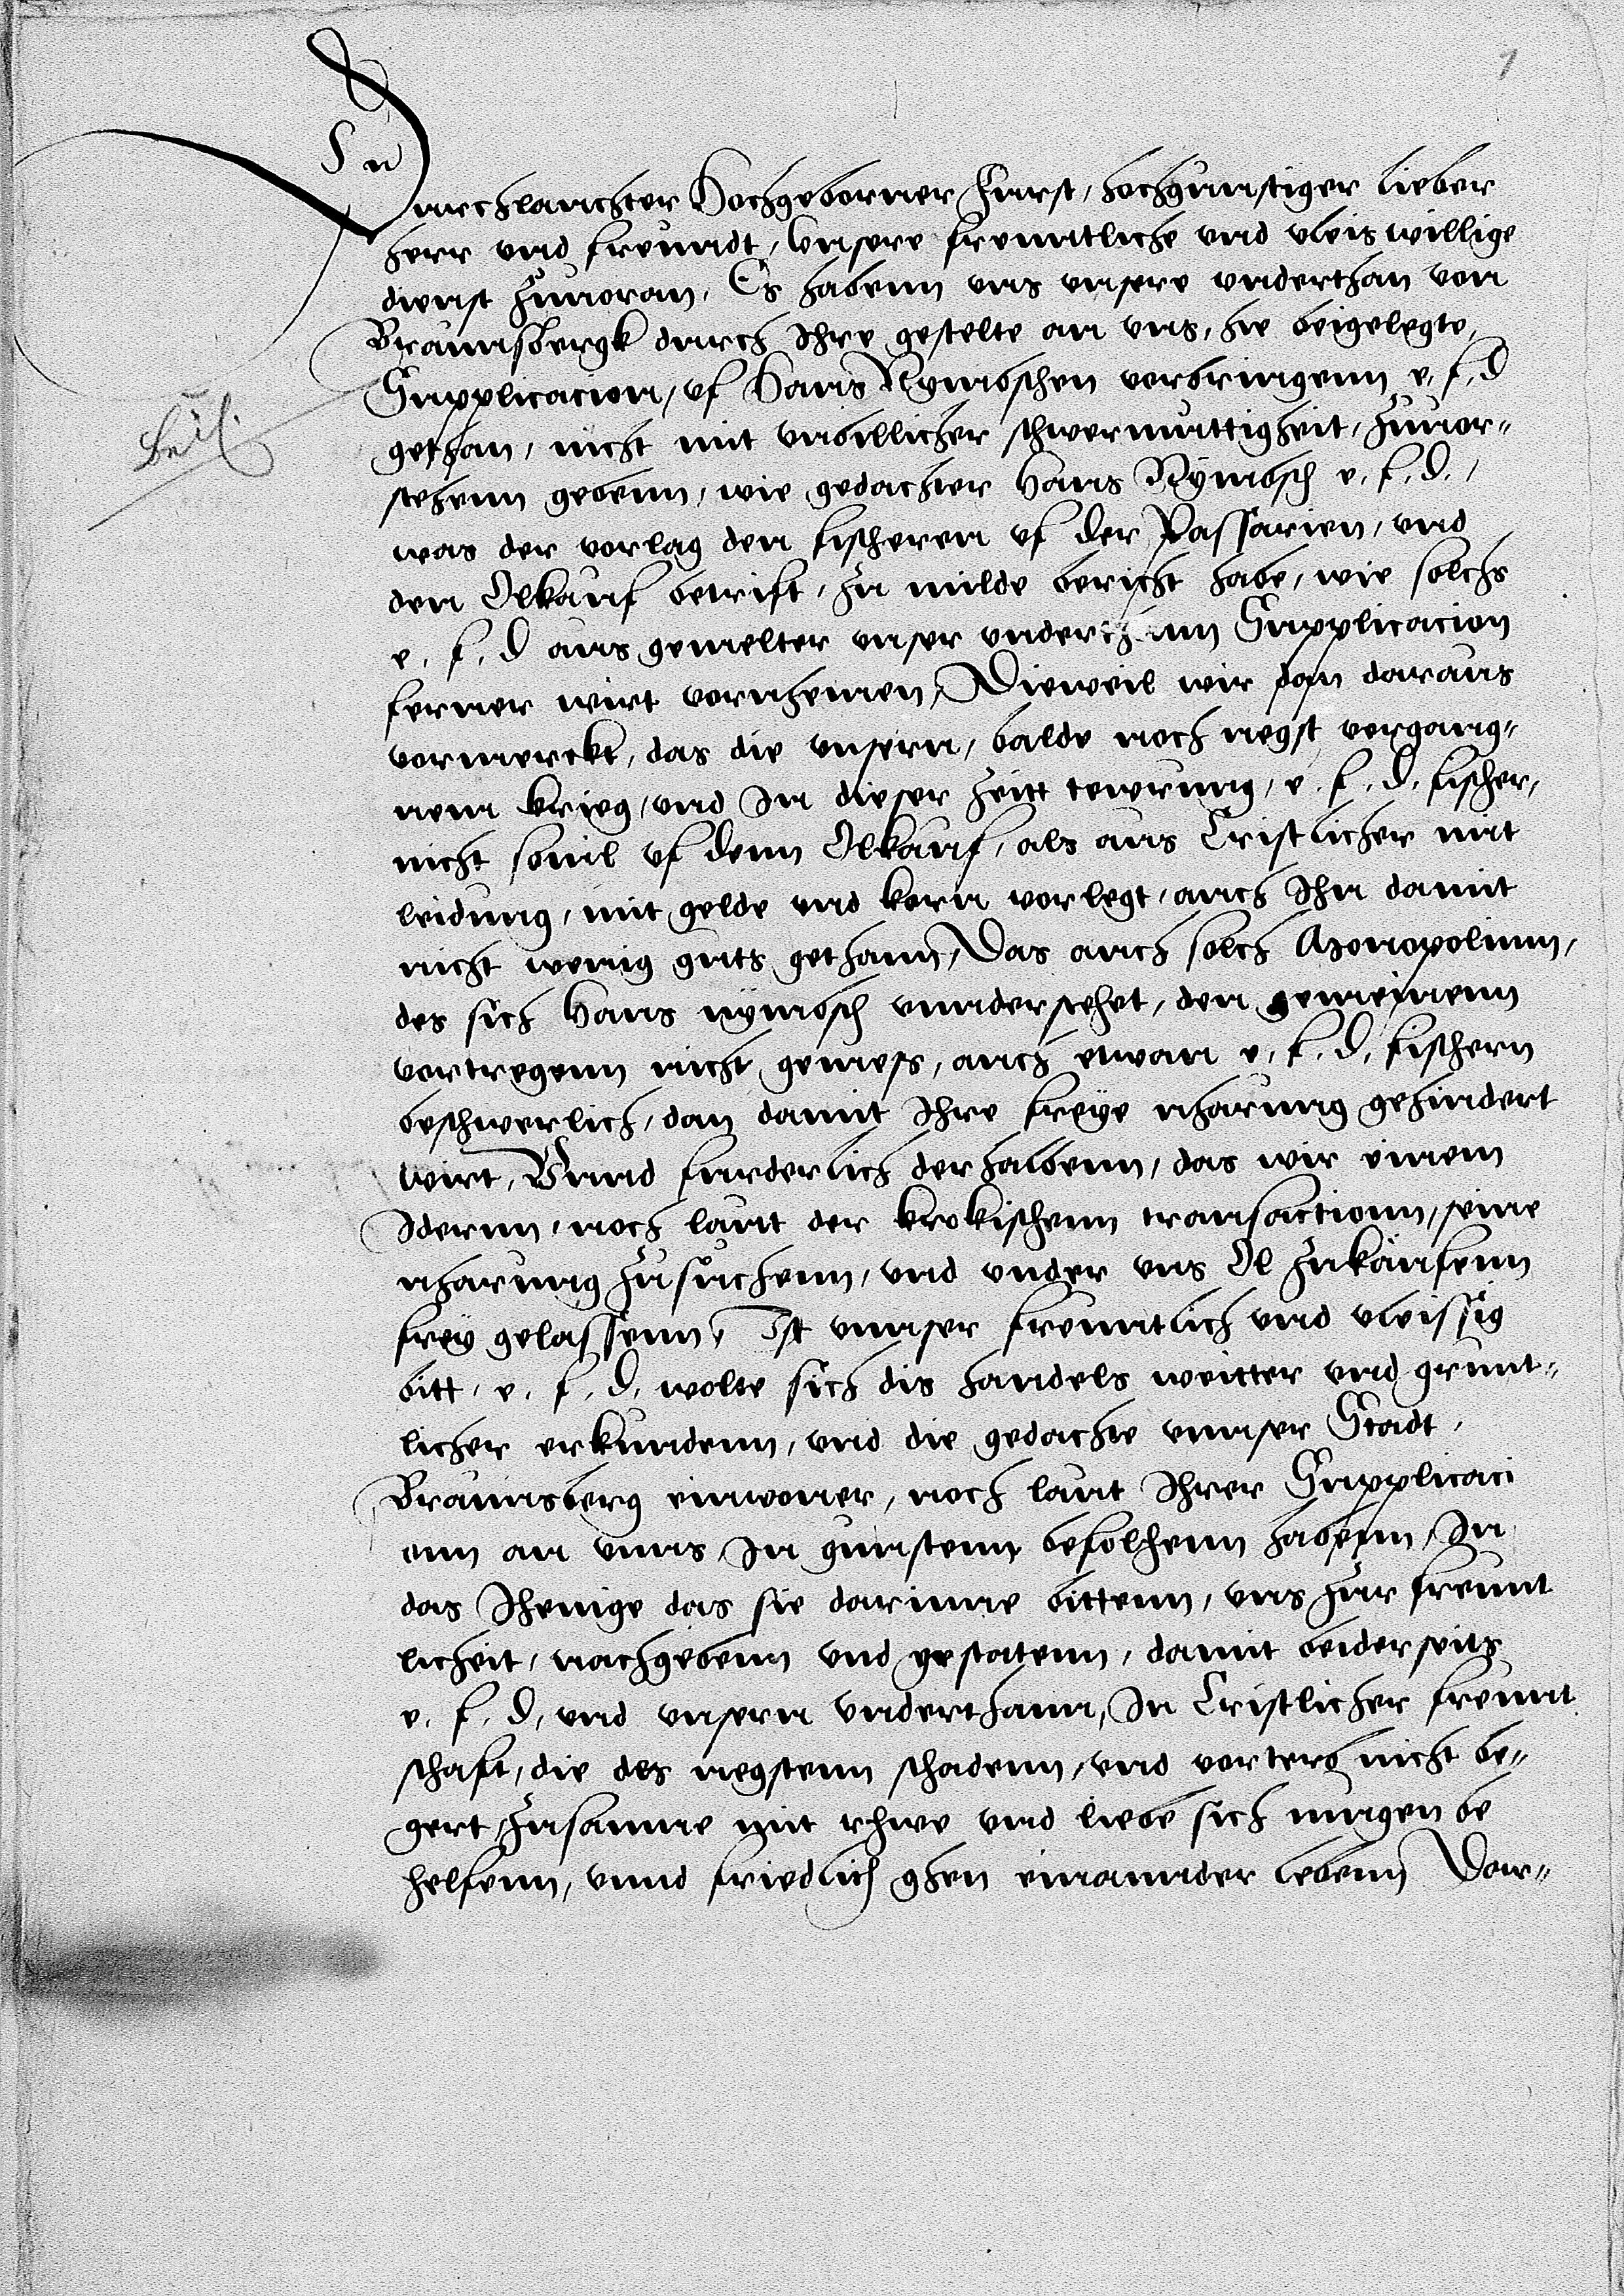 1
Durchlauchter Hochgeborner Furst, hochgunstiger lieber
herr und freundt, Unsere freuntliche und vleis willige
dienst zuuoran, Es habenn uns unsere underthan von
Braunsbergk durch Ihre gestelte an uns, hie beigelegte,
Supplicacion, uf Hans Nymbschen vorbringenn e. f. d
gethan, nicht mit unbillicher schwermuttigheit, zuuor-
stehenn gebenn, wie gedachter Hans Nymbsch e. f. d.,
was der vorlag den fischeren uf der Passarien, und
den Olkauf betrift, zu milde bericht habe, wie solchs
e. f. d aus gemelter unser underthann Supplicacion
ferner wirt vornhemen, Dieweil wir dan daraus
vormerckt, das die unsern, balde noch negst vergang-
nem krieg, und In dieser zeitt tewrung, e. f. d. fischer,
nicht souil uf denn Olkauf, als aus Cristlicher mit
leidung, mit gelde und korn vorlegt, auch Ihn damit
nicht wenig guts gethann, Das auch solch Monopolium,
des sich Hans nymbsch understehet, den gemeinenn
vortregenn nicht gemess, auch etwan e. f. d. fischern
beschwerlich, dan damit Ihre freye nharung gehindert
wirt, Unnd furderlich derhalbenn, das wir einem
Idernn, noch laut der krokischenn transactionn, seine
nharung zusuchenn, und under uns Ol zukaufenn
frey gelassenn, Ist unnser freuntlich und vleissig
bitt, e. f. d. wolte sich dis handels weitter und grunt-
licher erkundenn, und die gedachte unnser Stadt,
Braunsberg einwoner, noch laut Ihrer Supplicaci
onn an unns In gunstenn befolhenn habenn, In
das Ihenige das sie darinne bittenn, uns zur freunt
licheit, nachgebenn und gestatenn, damit beiderseits
e. f. d. und unsern underthann, In Cristlicher freunt
schaft, die des negstenn schadenn, und vorterb nicht be-
gert, zusamne mit rhwe und liebe sich mugen be
helfenn, unnd friedlich ghen einannder lebenn Dar-